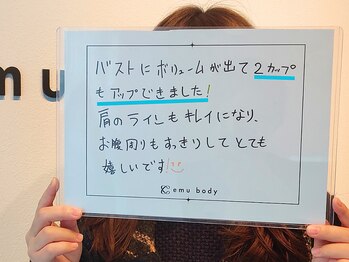 mu
バストにボリュームが出て2カップ
もアップできました!
肩のラインもキレイになり、
お腹周りもすっきりしてとても
嬉しいです
emu body